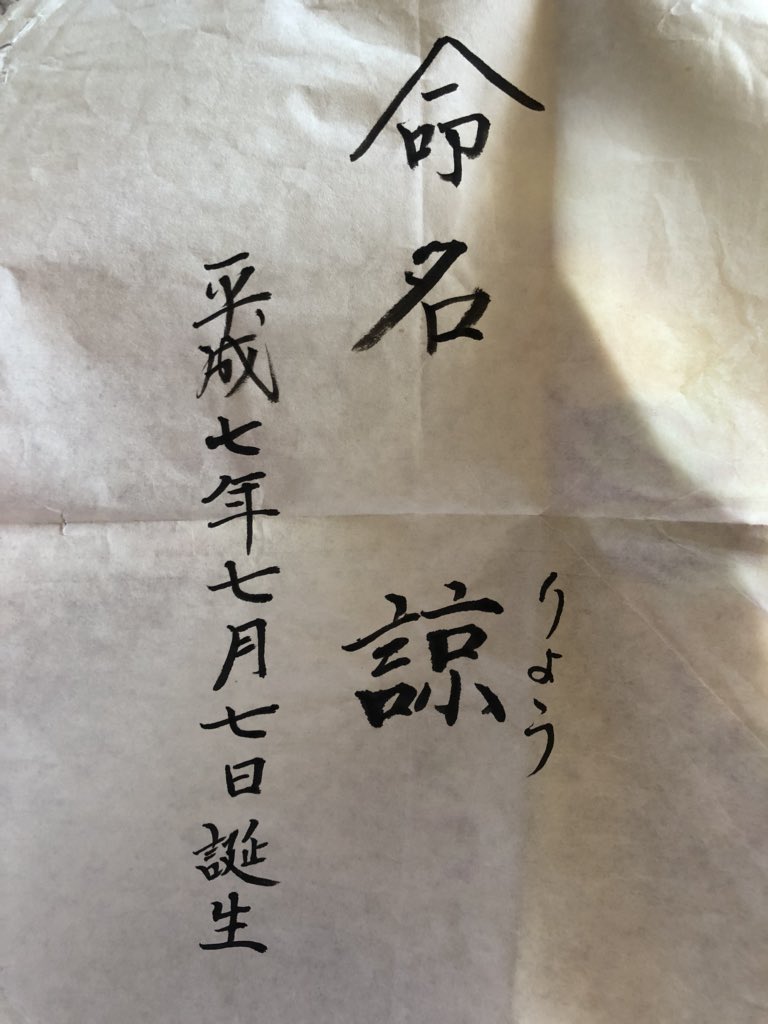 命名
諒
りょう
平成七年七月七日誕生